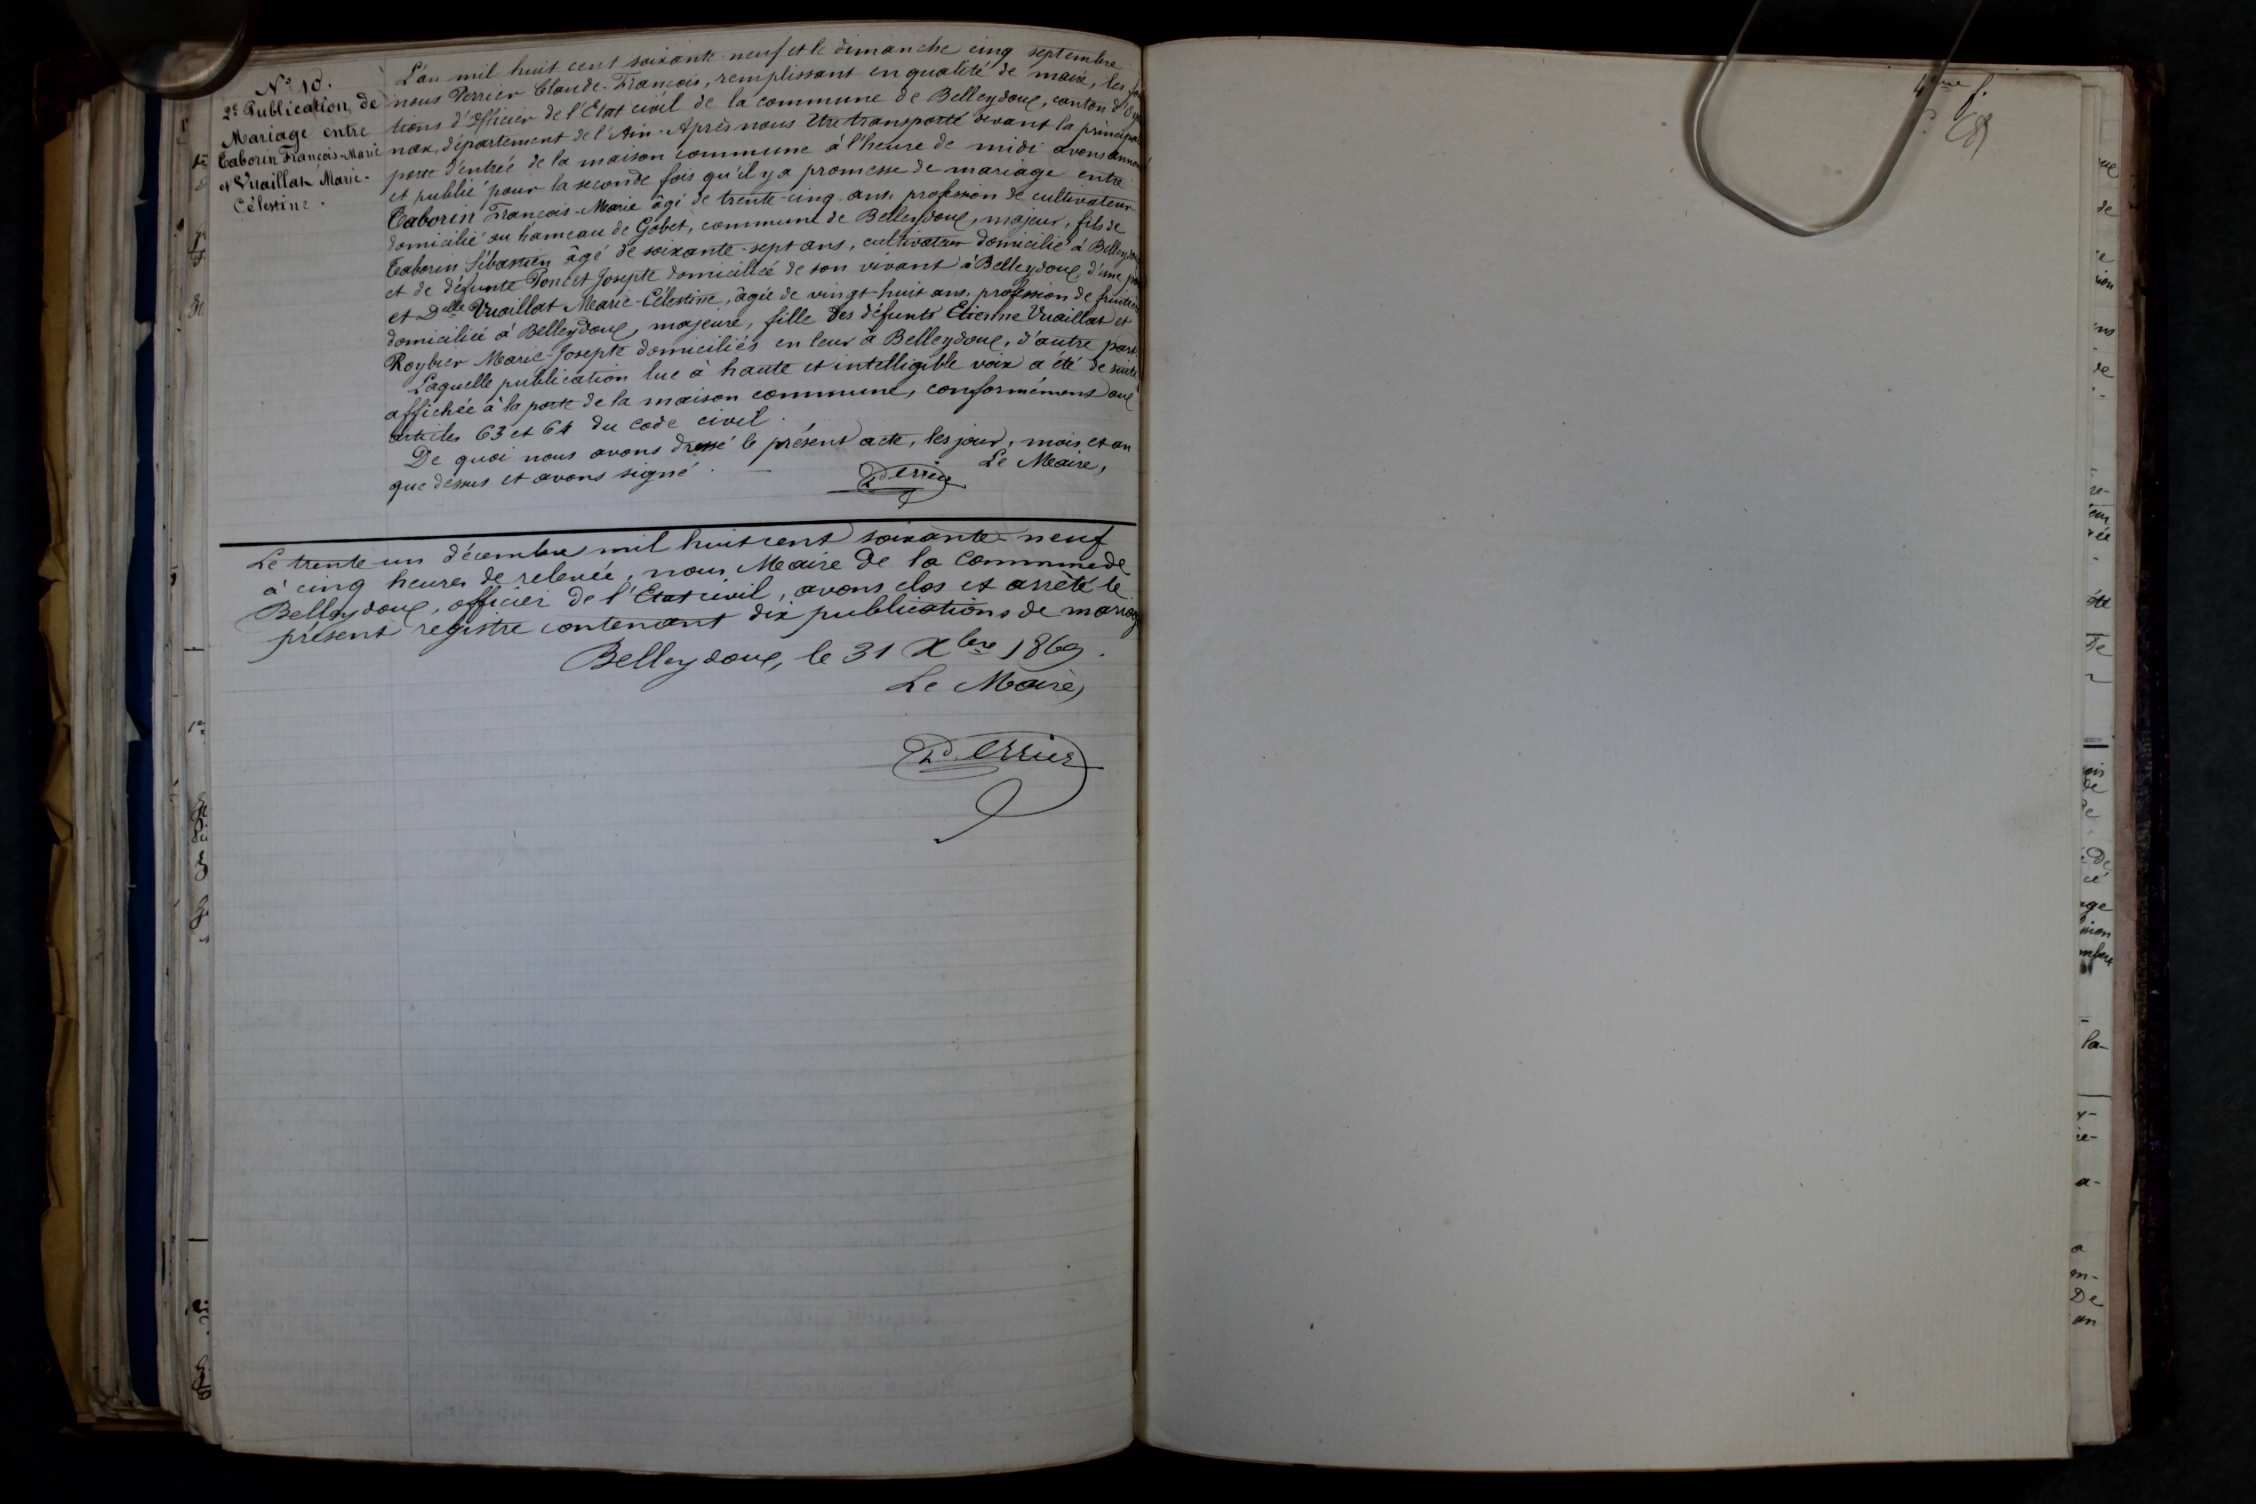 N° 10.
2e Publication de
Mariage entre
Taborin François-Marie
et Vuaillat Marie-
Célestine.
L'an mil huit cent soixante-neuf et le dimanche cinq septembre
nous Perrier Claude-François, remplissant en qualité de maire, les fonc
tions d'officier de l'Etat civil de la commune de Belleydoux, canton d'Oyon
nax, département de l'Ain. Après nous être transporté devant la principale
porte d'entrée de la maison commune à l'heure de midi avons annoncé
et publié pour la seconde fois qu'il y a promesse de mariage entre
Taborin François-Marie âgé de trente-cinq ans, profession de cultivateur
domicilié au hameau de Gobet, commune de Belleydoux, majeur, fils de
Taborin Sébastien âgé de soixante-sept ans, cultivateur domicilié à Belleydoux
et de défunte Poncet Josepte domiciliée de son vivant à Belleydoux, d'une part
et Delle Vuaillat Marie-Célestine, âgée de vingt-huit ans, profession de
domiciliée à Belleydoux, majeure, fille des défunts Etienne Vuaillat et
Roybier Marie-Josepte domiciliés en leur à Belleydoux, d'autre part.
Laquelle publication lue à haute et intelligible voix a été de suite
affichée à la porte de la maison commune, conformément aux
articles 63 et 64 du code civil.
De quoi nous avons dressé le présent acte, les jour, mois et an
que dessus et avons signé.
Le Maire,
Perrier
Le trente-un décembre mil huit cent soixante-neuf
à cinq heures de relevée, nous Maire de la Commune de
Belleydoux, officier de l'Etat civil, avons clos et arrêté le
présent registre contenant dix publications de mariage
Belleydoux, le 31 Xbre 1869.
Le Maire,
Perrier
4me f.